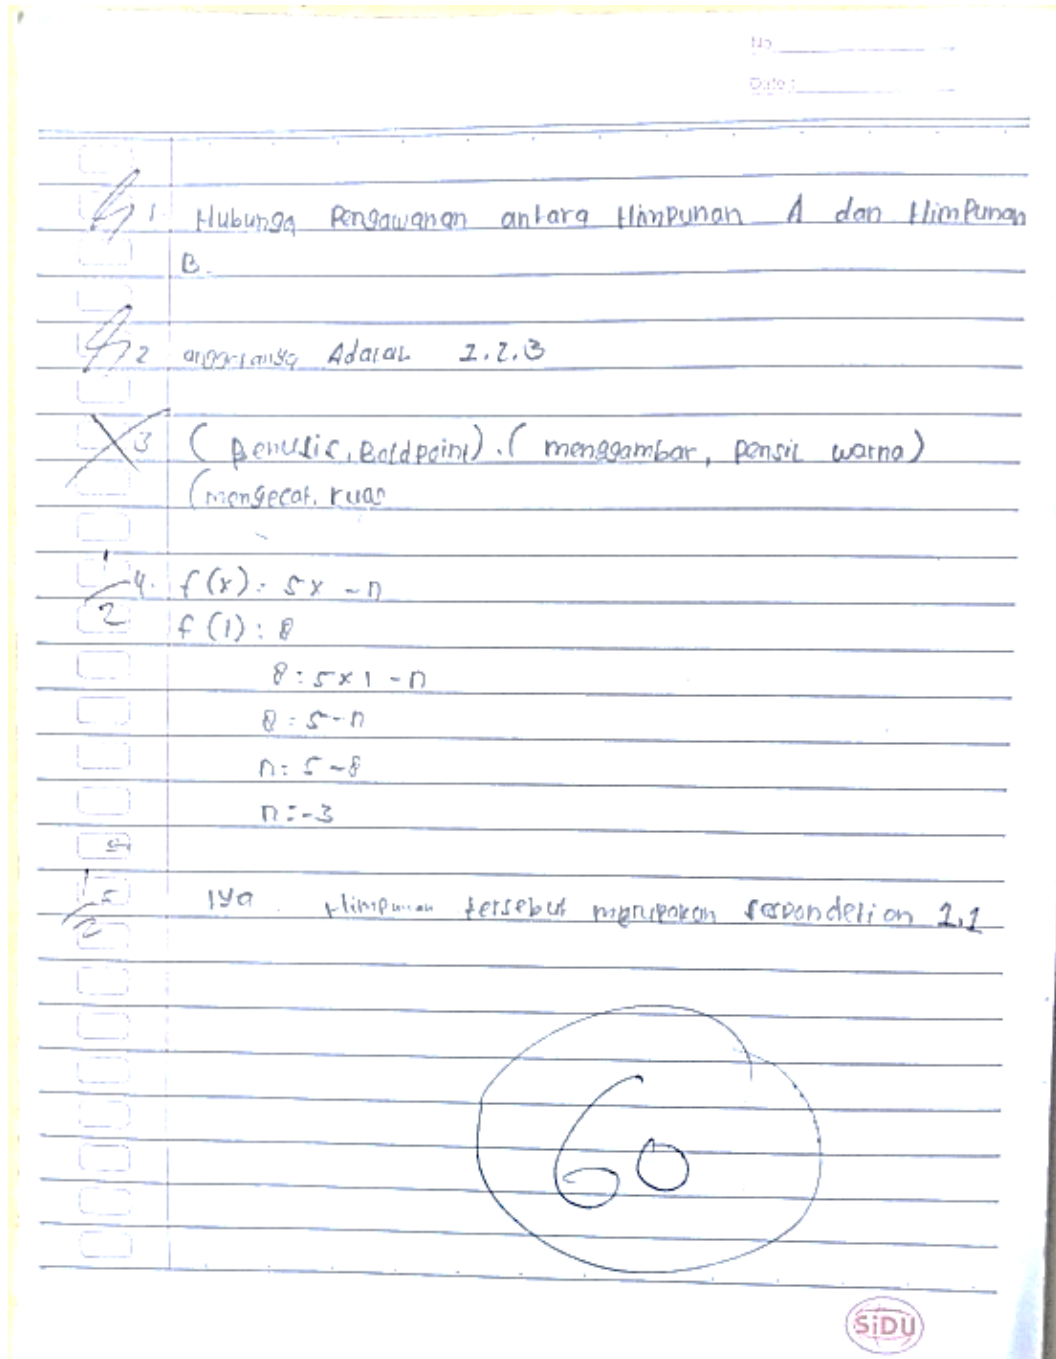 No
Date:
1. Hubunga Pengawanan antara Himpunan A dan Himpunan
B.
2 Adalah 1.2.3
3 (Penulis, Boldpoint). (menggambar, Pensil warna)
(mengecat. kuas
1/2 4. f(x) = 5x - n
f(1) : 8
8 = 5 x 1 - n
8 = 5 - n
n = 5 - 8
n = -3
1/2 5 Iya Himpunan tersebut merupakan 1.1
60
SiDU